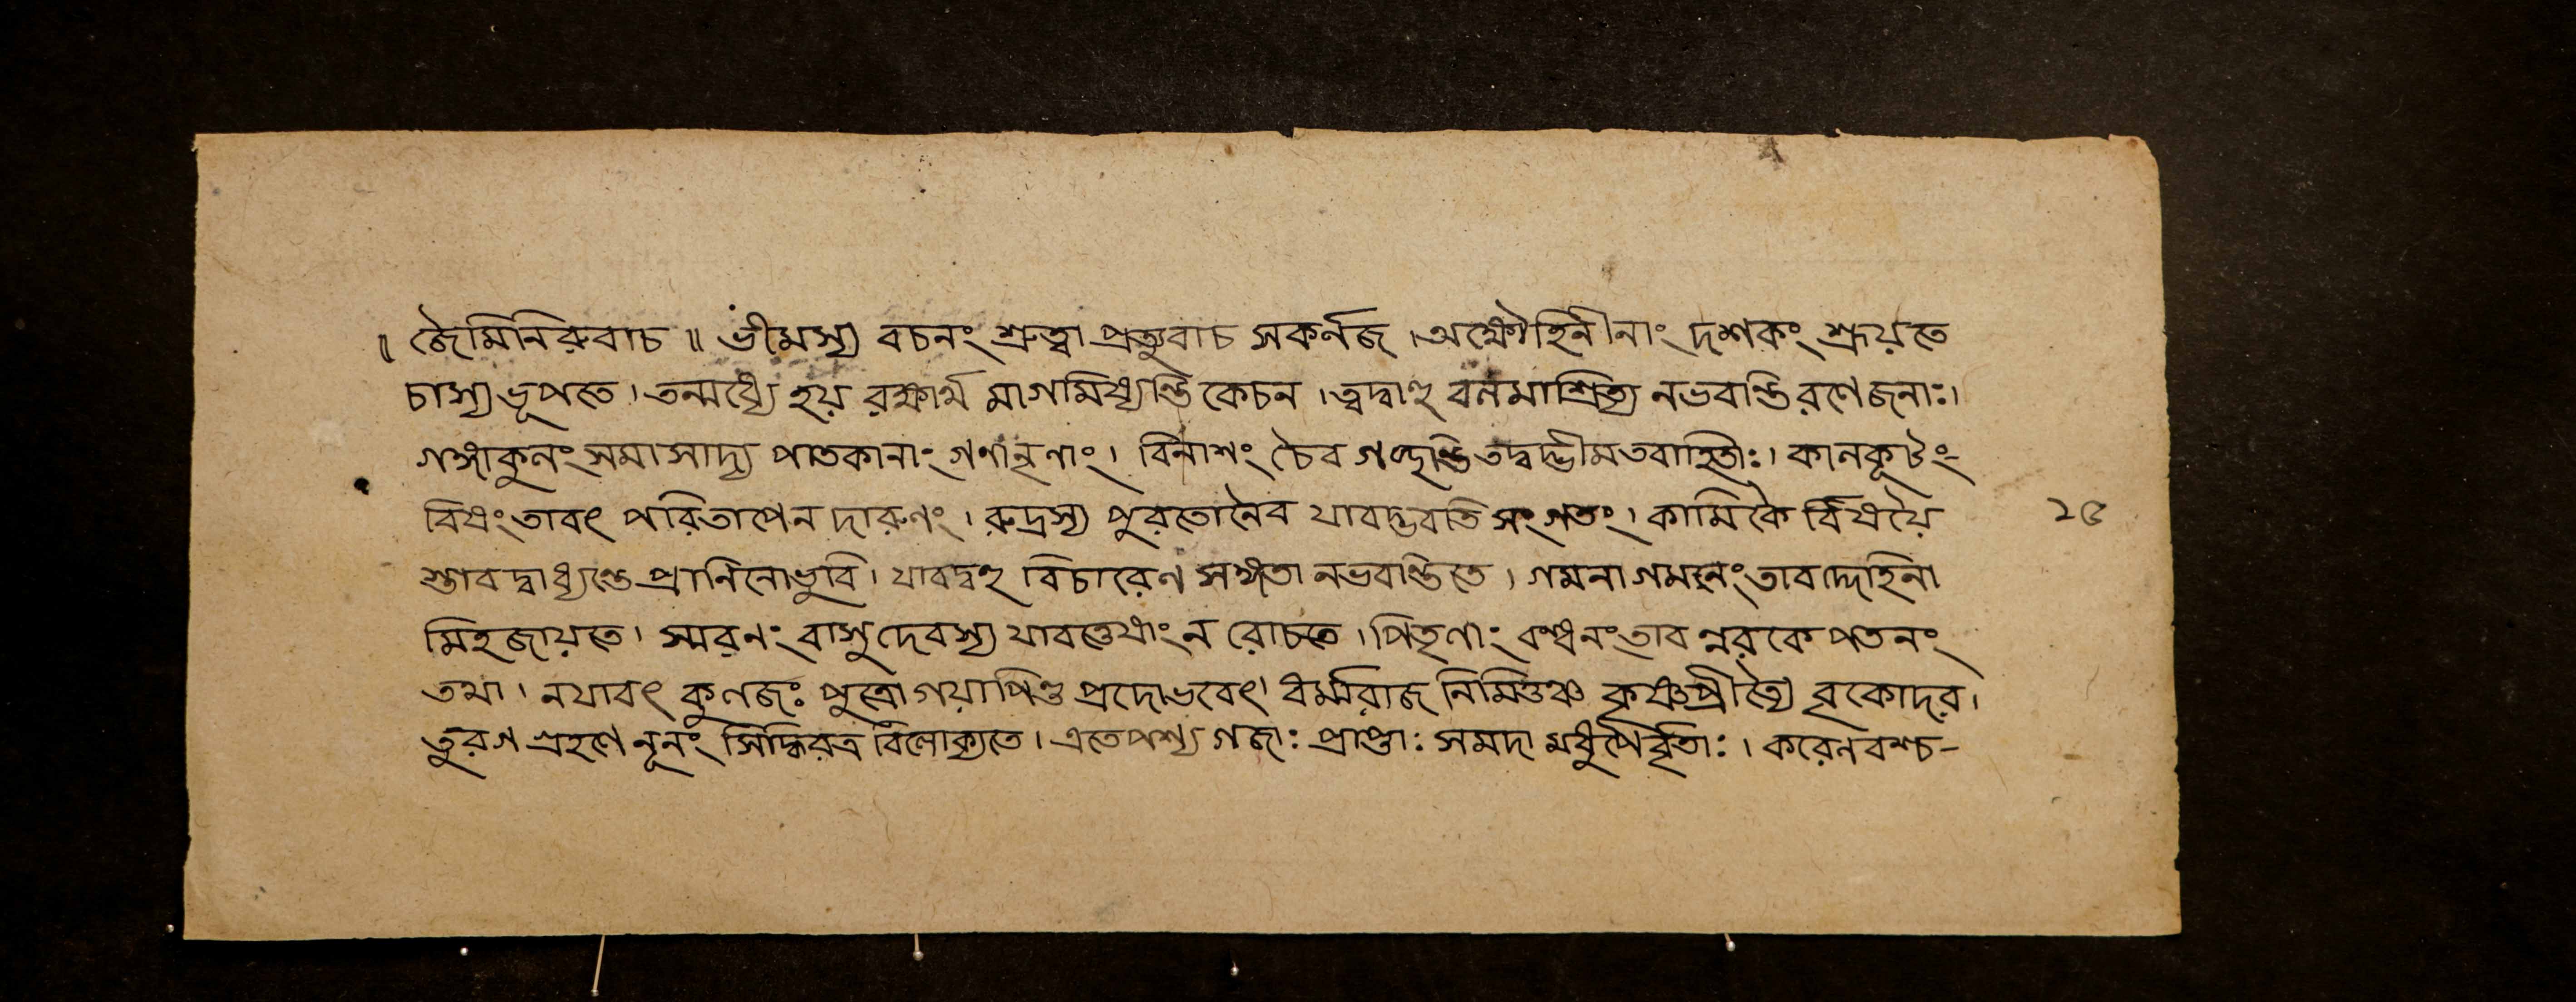 ॥ জৈমিনিরুবাচ ॥ ভীমস্য বচনং শ্রুত্বা প্রত্যুবাচ সকর্নজ । অক্ষৌহিনীনাং দশকং শ্রূয়তে
চাস্য ভূপতে । তন্মধ্যে হয় রক্ষার্থ মাগমিষ্যন্তি কেচন । ত্বদ্বাহু বলমাশ্রিত্য নভবান্তি রণে জনাঃ ।
গঙ্গাকুলং সমাসাদ্য পাতকানাং গণানৃণাং । বিনাশং চৈব গচ্ছন্তি তদ্বদ্ভীমতবাহিতাঃ । কালকূটং-
বিষং তাবৎ পরিতাপেন দারুণং । রুদ্রস্য পুরতোনৈব যাবদ্ভবতি সংগতং । কামিকৈ র্বিষয়ৈ ২৫
স্তাবদ্বাধ্যন্তে প্রানিনোভুবি । যাবদ্বহু বিচারেণ সঙ্গতা নভবান্তিতে । গমনাগমনং তাবদ্দেহিনা
মিহজায়তে । স্মরণং বাসুদেবস্য যাবত্তেষাং ন রোচতে । পিতৃণাং বন্ধনং তাব ন্নরকে পতনং
তথা । নযাবৎ কুলজঃ পুত্রো গয়াপিণ্ড প্রদোভবেৎ । ধর্ম্মরাজ নিমিত্তঞ্চ কৃষ্ণপ্রীত্যৈ বৃকোদর ।
তুরগ গ্রহণে নূনং সিদ্ধিরত্র বিলোক্যতে । এতেপশ্য গজাঃ প্রাপ্তাঃ সমদা মধুপৈর্বৃতাঃ । করেণবশ্চ-